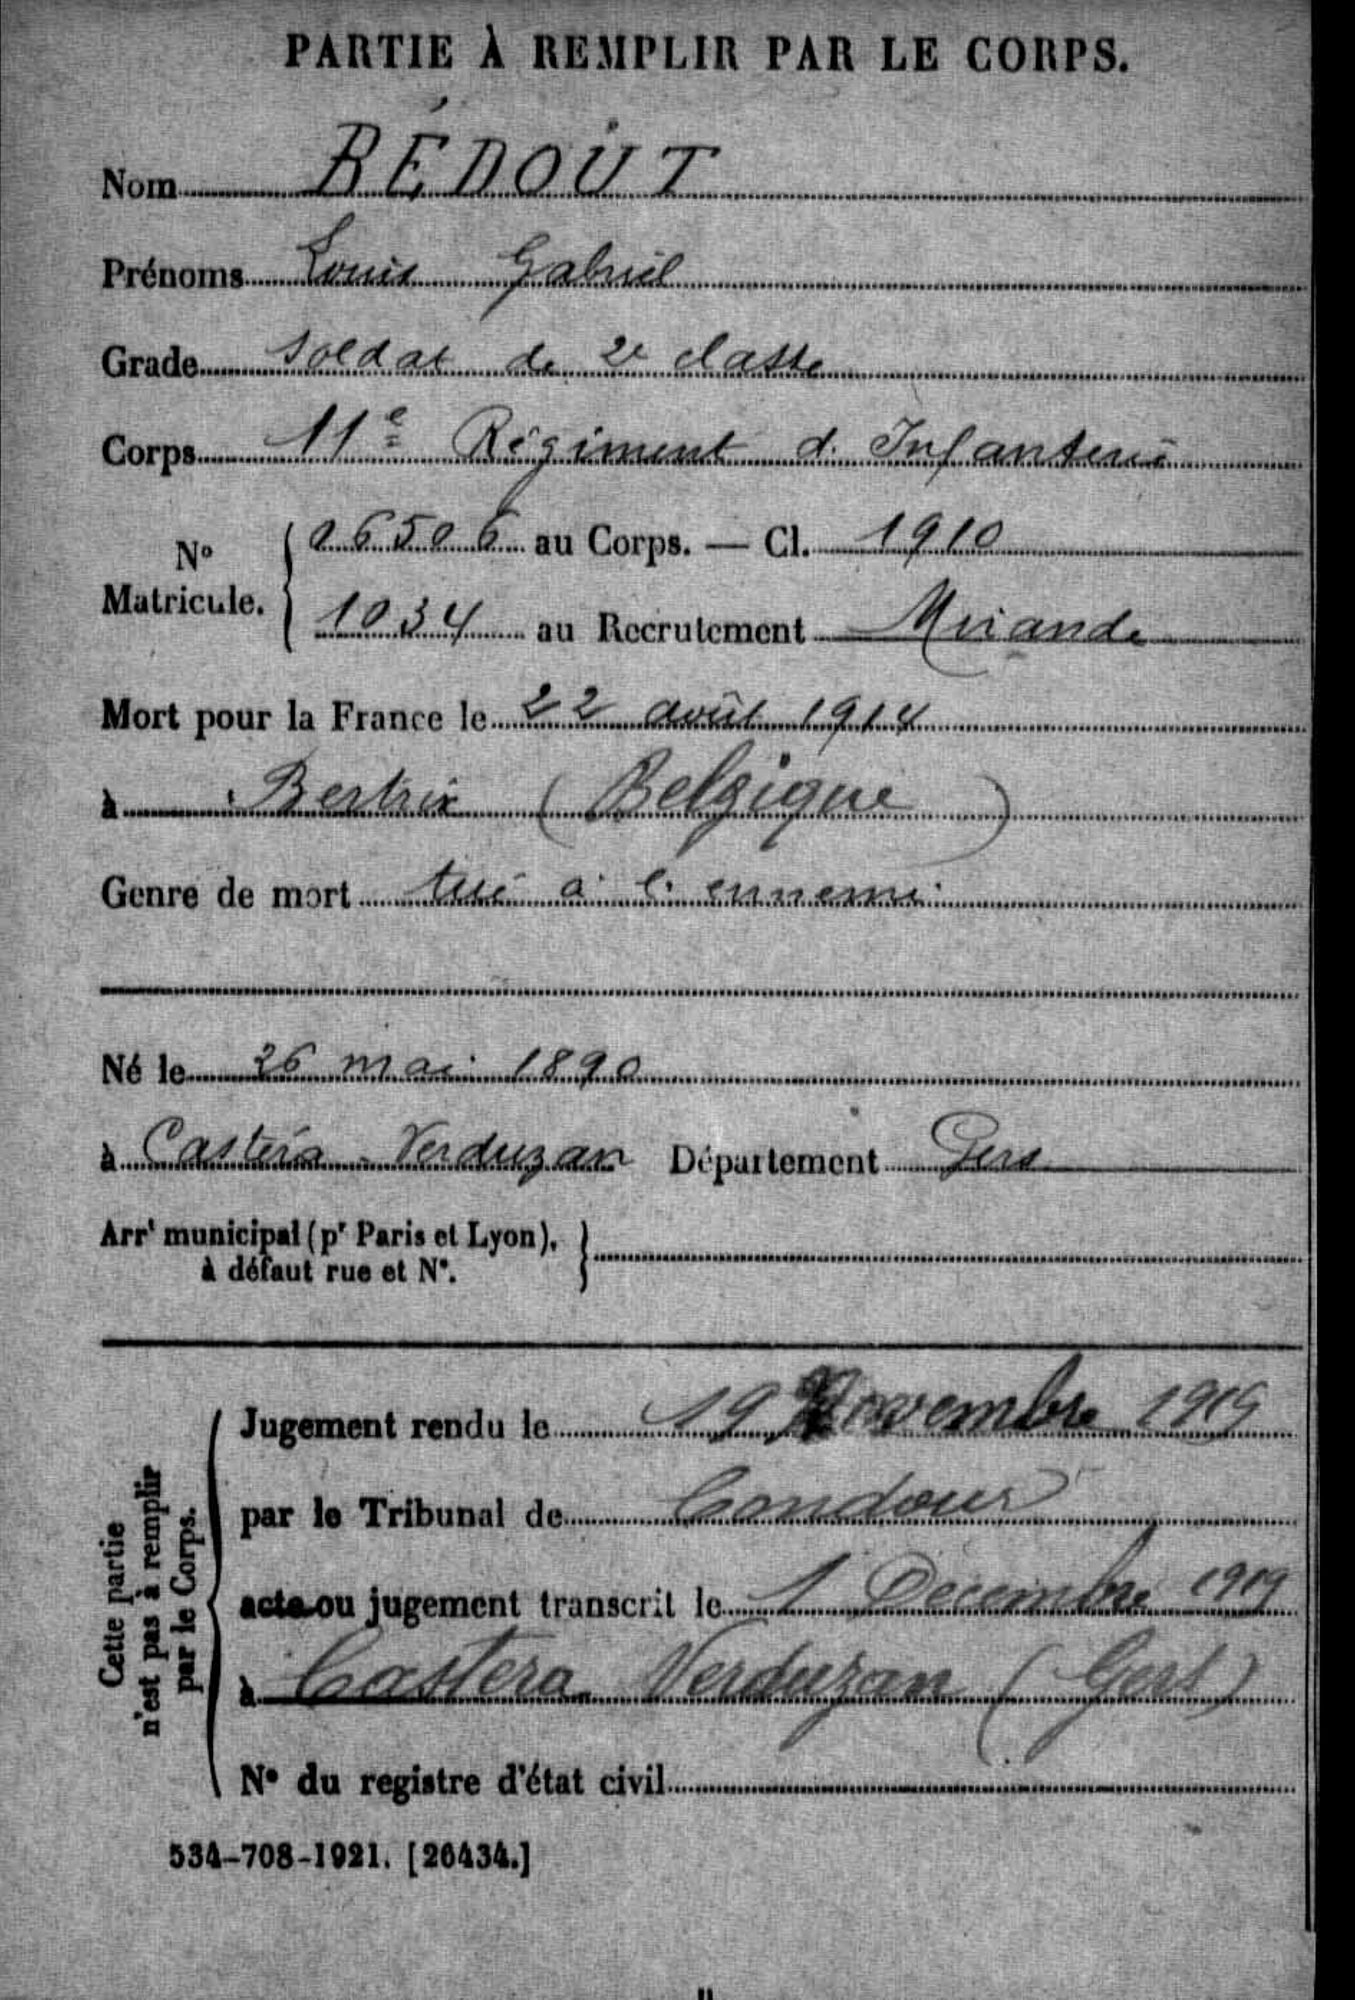 PARTIE À REMPLIR PAR LE CORPS.
Nom RÉDOÚT
Prénoms Louis Gabriel
Grade soldat de 2e classe
Corps 11e Régiment d'Infanterie
No Matricule. { 06506 au Corps. — Cl. 1910
1034 au Recrutement Mirande
Mort pour la France le 22 août 1914
à Bertrix (Belgique)
Genre de mort tué à l'ennemi
Né le 26 mai 1890
à Castéra-Verduzan Département Gers
Arrt municipal (pr Paris et Lyon), }
à défaut rue et No.
Cette partie
n'est pas à remplir
par le Corps.
Jugement rendu le 19 Novembre 1919
par le Tribunal de Condom
acte ou jugement transcrit le 1 Décembre 1919
à Castera Verduzan (Gers)
No du registre d'état civil
534-708-1921. [26434.]